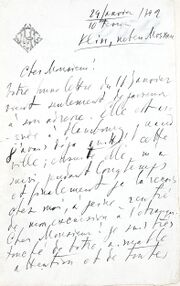 29 Janvier
10 Février
Klin, près Moscou
Cher Monsieur!
Votre bonne lettre du 11 Janvier
vient seulement de parvenir
à son adresse. Elle est
à Hambourg quand
j'avais déjà quitté cette
ville; ensuite elle m'a
suivi pendant longtemps
et finalement je la reçois
chez moi, à peine rentré
de mon excursion à l'étranger.
Cher Monsieur! Je suis très
touché de votre aimable
attention et de toutes